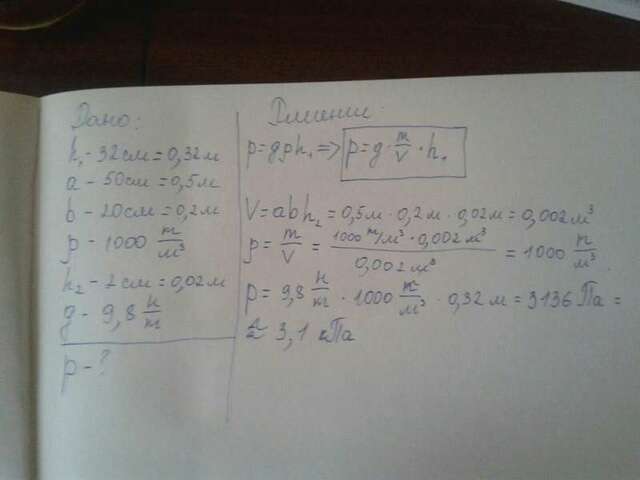 Дано:
h₁ - 32 см = 0,32 м
a - 50 см = 0,5 м
b - 20 см = 0,2 м
ρ - 1000 m/м³
h₂ - 2 см = 0,02 м
g - 9,8 н/m
p - ?
Решение:
p = gρh₁ => p = g · m/V · h₁
V = abh₂ = 0,5 м · 0,2 м · 0,02 м = 0,002 м³
ρ = m/V = 1000 m/м³ · 0,002 м³ / 0,002 м³ = 1000 m/м³
p = 9,8 н/m · 1000 m/м³ · 0,32 м = 3136 Па =
≈ 3,1 кПа